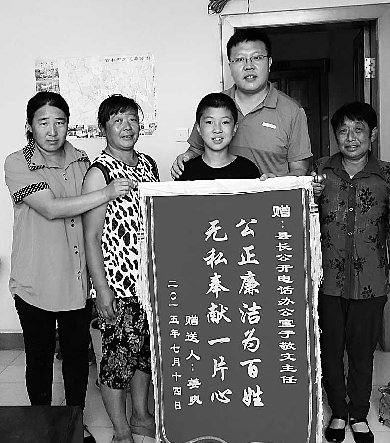 赠：县长公开电话办公室于敬文主任
公正廉洁为百姓
无私奉献一片心
赠送人：姜爽
二〇一五年七月十四日